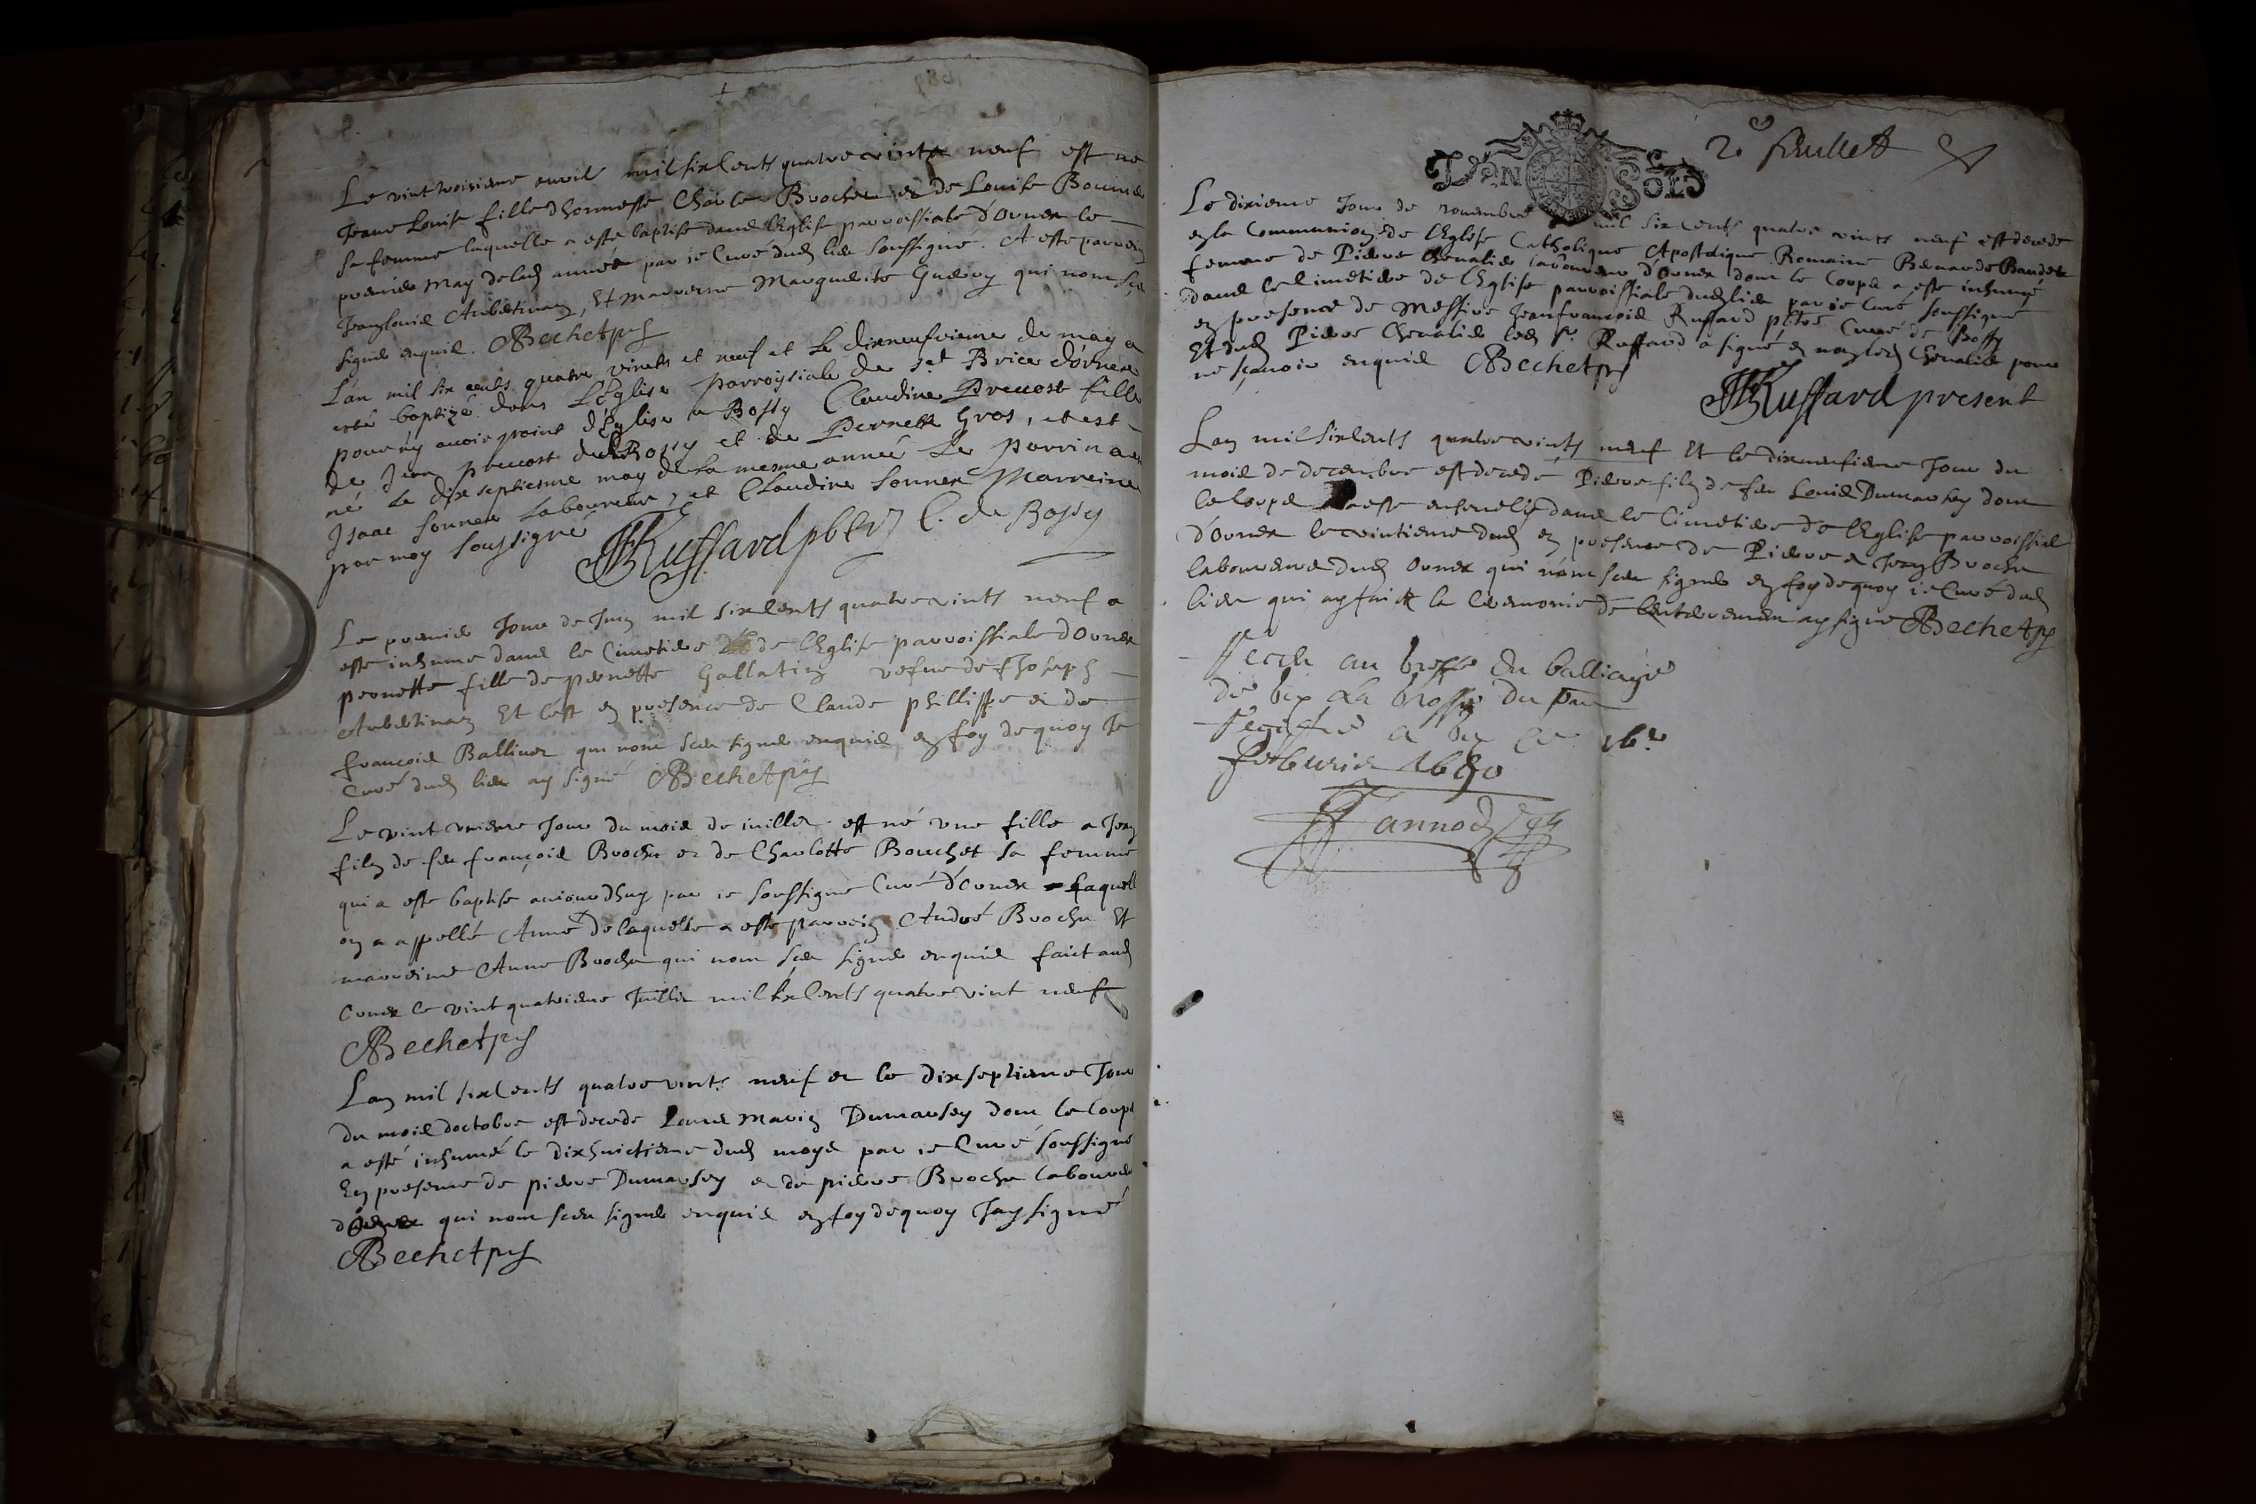 Le vint troisieme avril mil six Cents quatre vints neuf est né
Jeane Louise fille d'honneste Charle Brochu et de Louise Bouvier
sa femme laquelle a esté baptisé dans l'Eglise parroissiale d'Ornex le
premier May de lad année par ie Curé dud lieu soussigné. A esté parrein
Jean louis Aubertinaz, Et marreine Marguerite Guerry qui nont sceu
signer enquis. Bechet prs
L'an mil six cents quatre vints et neuf et le dixneufvieme de may a
esté baptizé dans l'Eglise Parroyssiale de st Brice d'ornex
pour ny avoir point d'Eglise a Bossy Claudine Prevost fille
de Jean prevost dud Bossy et de Pernette Gros, et est
né le dix septiesme may de la mesme année Le Parrin a esté
Isaac sonnex Laboureur, et Claudine sonnex Marreine
par moy soussigné JF Ruffard pbtre C. de Bossy
Le premier Jour de Juin mil six Cents quatre vints neuf a
esté inhumé dans le Cimetiere de l'Eglise parroissiale d'Ornex
pernette fille de pernette Gallatin vefue de f Joseph
Aubertinaz Et c'est en presence de Claude phillippe et de
francois Ballivet qui nont sceu signer enquis, en foy de quoy Je
Curé dud lieu ay signé Bechet prs
Le vint unieme Jour du mois de iuillet est né une fille a Jean
filz de feu françois Brochu et de Charlotte Bouchet sa femme
qui a esté baptisé auiourdhuy par ie soussigné Curé d'Ornex Laquelle
on a appellé Anne de laquelle a esté parrein André Brochu Et
marreine Anne Brochu qui nont sceu signer enquis faict aud
Ornex le vint quatrieme Juillet mil six Cents quatre vint neuf
Bechet prs
Lan mil six Cents quatre vints neuf et le dixseptieme Jour
du mois doctobre est decedé Marin Dumarsey dont le Corps
a esté inhumé le dixhuictieme dud moys par ie Curé soussigné
En presence de pierre Dumarsey et de pierre Brochu laboureur
d'Ornex qui nont sceu signer enquis en foy de quoy Jay signé
Bechet prs
2e feuillet
Le dixieme Jour de novembre mil six cents quatre vints neuf est decedé
en la Communion de l'Eglise Catholique Apostolique Romaine Bernarde Baudet
femme de Pierre Chevalier laboureur d'Ornex dont le Corps a esté inhumé
dans le Cimetiere de l'Eglise parroissiale dud lieu par ie Curé soussigné
en presence de Messire Jean francois Ruffard ptre Curé de Bossy
Et dud Pierre Chevalier led Sr Ruffard a signé et non led Chevalier pour
ne sçavoir enquis Bechet prs
JF Ruffard present
Lan mil six Cents quatre vints neuf Et le dixneufieme Jour du
mois de decembre est decedé Pierre filz de feu Louis Dumarsey dont
le Corps a esté ensevely dans le Cimetiere de l'Eglise parroissiale
d'Ornex le vintieme dud en presence de Pierre et Jean Brochu
laboureurs dud Ornex qui n'ont sceu signer en foy de quoy ie Curé dud
lieu qui ay faict la Ceremonie de lenterremen ay signé Bechet prs
au greffe du balliage
de Gex
a Gex ce 16e
Febvrier 1690